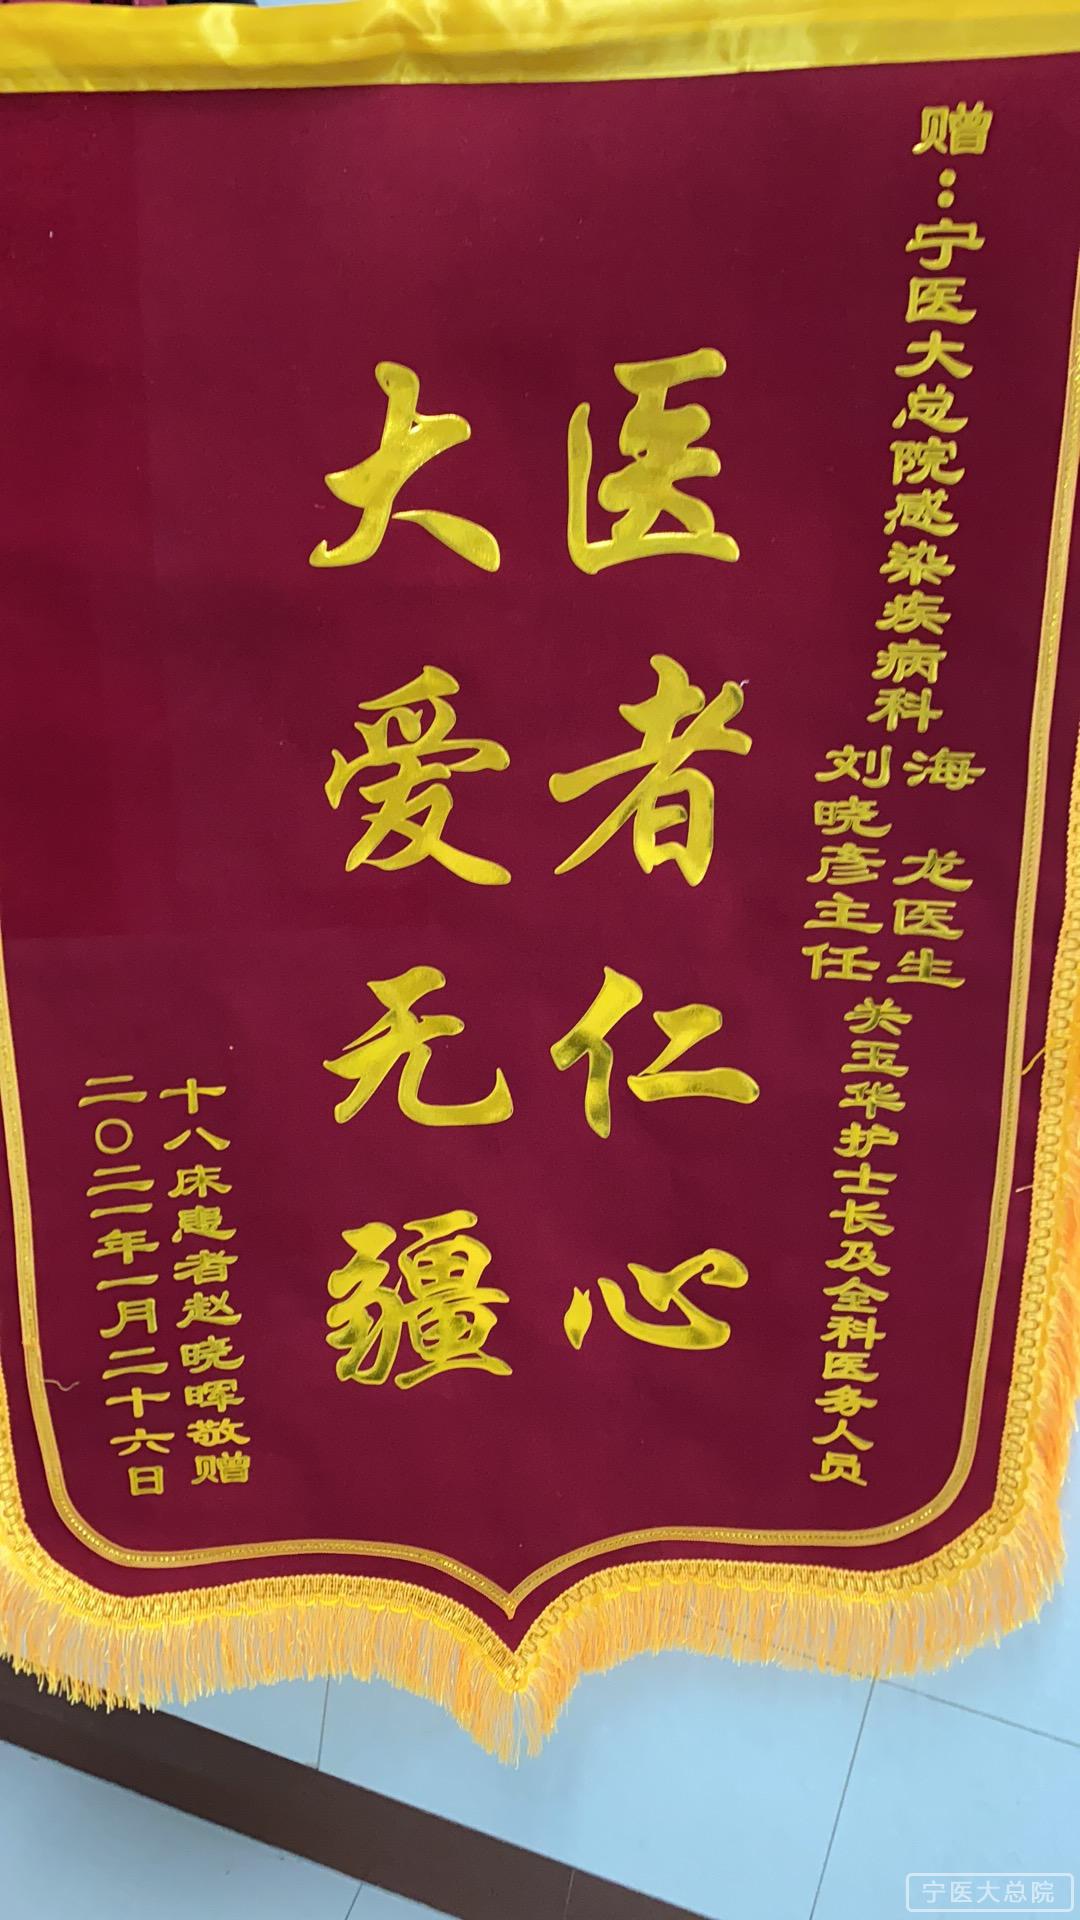 赠：宁医大总院感染疾病科
海龙医生
刘晓彦主任
关玉华护士长及全科医务人员
医者仁心
大爱无疆
十八床患者赵晓晖敬赠
二〇二一年一月二十六日
宁医大总院